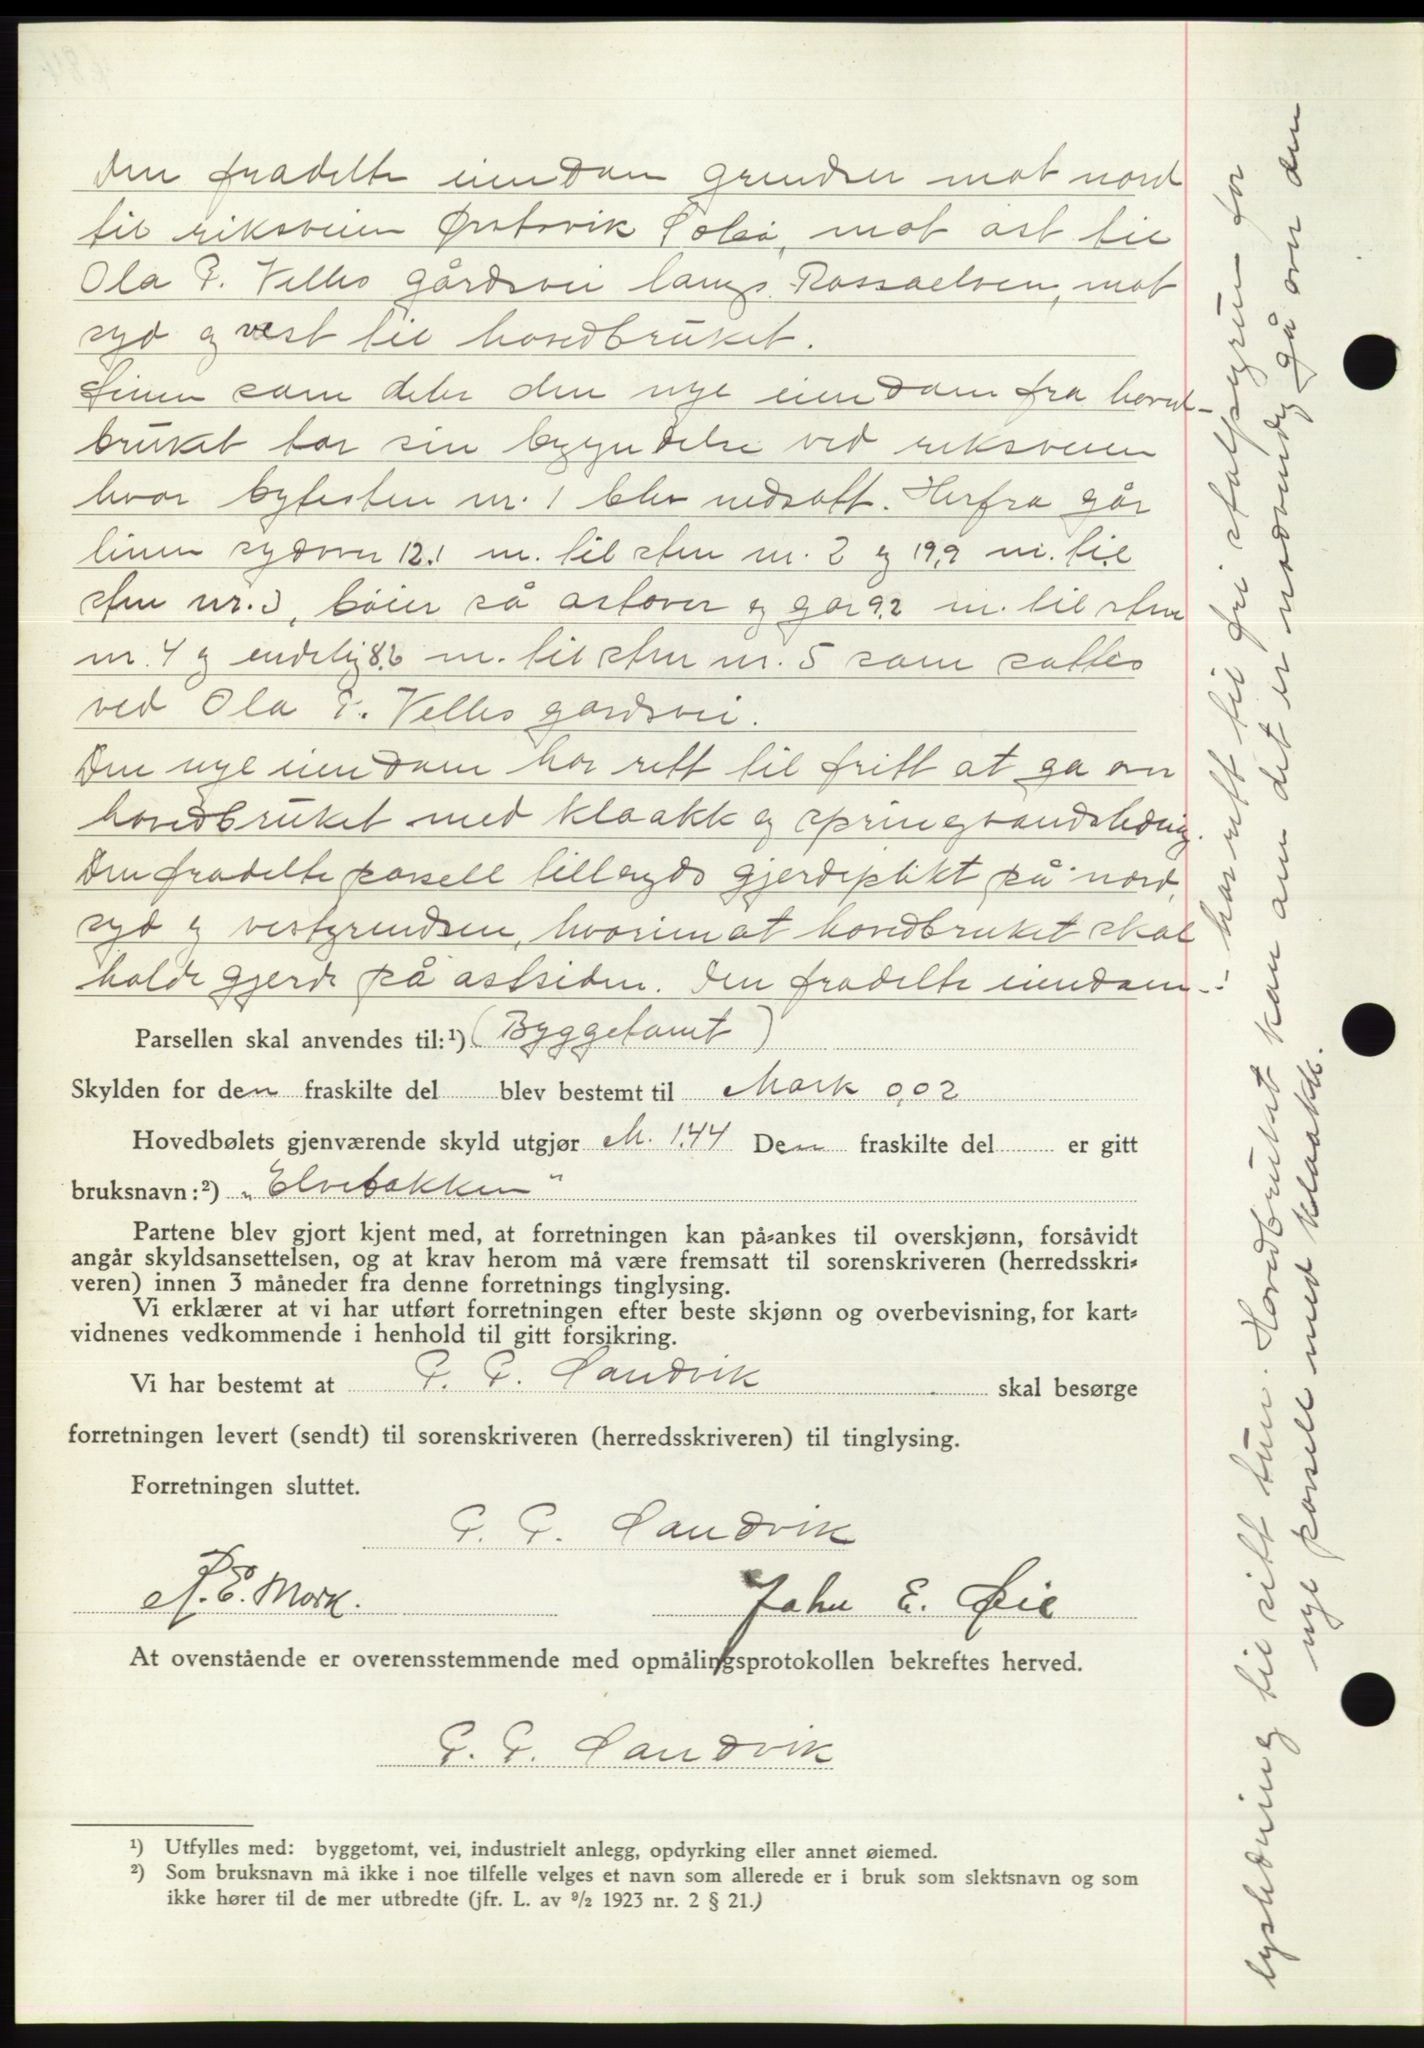 Den fradelte eiendom grendser mot nord
til riksveien Ørstavik Folei, mot øst til
Ola P. Velles gårdsvei langs Rossaelven, mot
syd og vest til hovedbruket.
Linen som deler den nye eiendom fra hoved-
bruket tar sin begyndelse ved riksveien
hvor bytesten nr. 1 blev nedsatt. Herfra går
linen sydover 12.1 m. til sten nr. 2 og 19,9 m. til
sten nr. 3, bøier så østover og går 9.2 m. til sten
nr. 4 og endelig 8,6 m. til sten nr. 5 som sattes
ved Ola P. Velles gårdsvei.
Den nye eiendom har rett til fritt at gå over
hovedbruket med kloakk og springvandsledning.
Den fradelte parsell tillegges gjerdeplikt på nord,
syd og vestgrendsen, hvorimot hovedbruket skal
holde gjerde på østsiden. Den fradelte eiendom -:-
Parsellen skal anvendes til:¹) (Byggetomt)
Skylden for den fraskilte del blev bestemt til Mark 0,02
Hovedbølets gjenværende skyld utgjør M. 1.44 Den fraskilte del er gitt
bruksnavn:²) „Elvebakken"
Partene blev gjort kjent med, at forretningen kan på-ankes til overskjønn, forsåvidt
angår skyldsansettelsen, og at krav herom må være fremsatt til sorenskriveren (herredsskri-
veren) innen 3 måneder fra denne forretnings tinglysing.
Vi erklærer at vi har utført forretningen efter beste skjønn og overbevisning, for kart-
vidnenes vedkommende i henhold til gitt forsikring.
Vi har bestemt at P. P. Sandvik skal besørge
forretningen levert (sendt) til sorenskriveren (herredsskriveren) til tinglysing.
Forretningen sluttet.
P. P. Sandvik
A. E. Mork. John E. Øie
At ovenstående er overensstemmende med opmålingsprotokollen bekreftes herved.
P. P. Sandvik
¹) Utfylles med: byggetomt, vei, industrielt anlegg, opdyrking eller annet øiemed.
²) Som bruksnavn må ikke i noe tilfelle velges et navn som allerede er i bruk som slektsnavn og som
ikke hører til de mer utbredte (jfr. L. av 9/2 1923 nr. 2 § 21.)
-:- har rett til fri stolpegrun for
lysledning til sitt tun. Hovedbruket kan om det er nødvendig gå over den
nye parsell med kloakk.